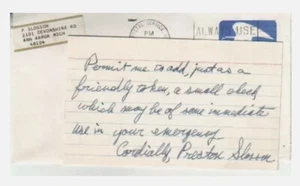 P SLOSSON
2101 DEVONSHIRE RD
ANN ARBOR MICH
48104
POSTAL SERVICE
PM
ALWAYS USE
Permit me to add, just as a
friendly token, a small check
which may be of some immediate
use in your emergency
Cordially, Preston Slosson